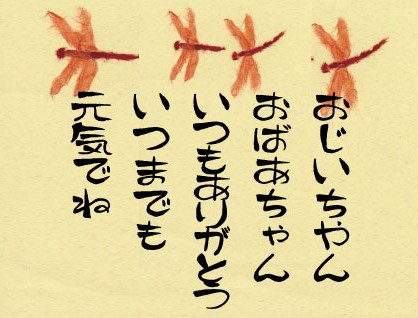 おじいちゃん
おばあちゃん
いつもありがとう
いつまでも
元気でね